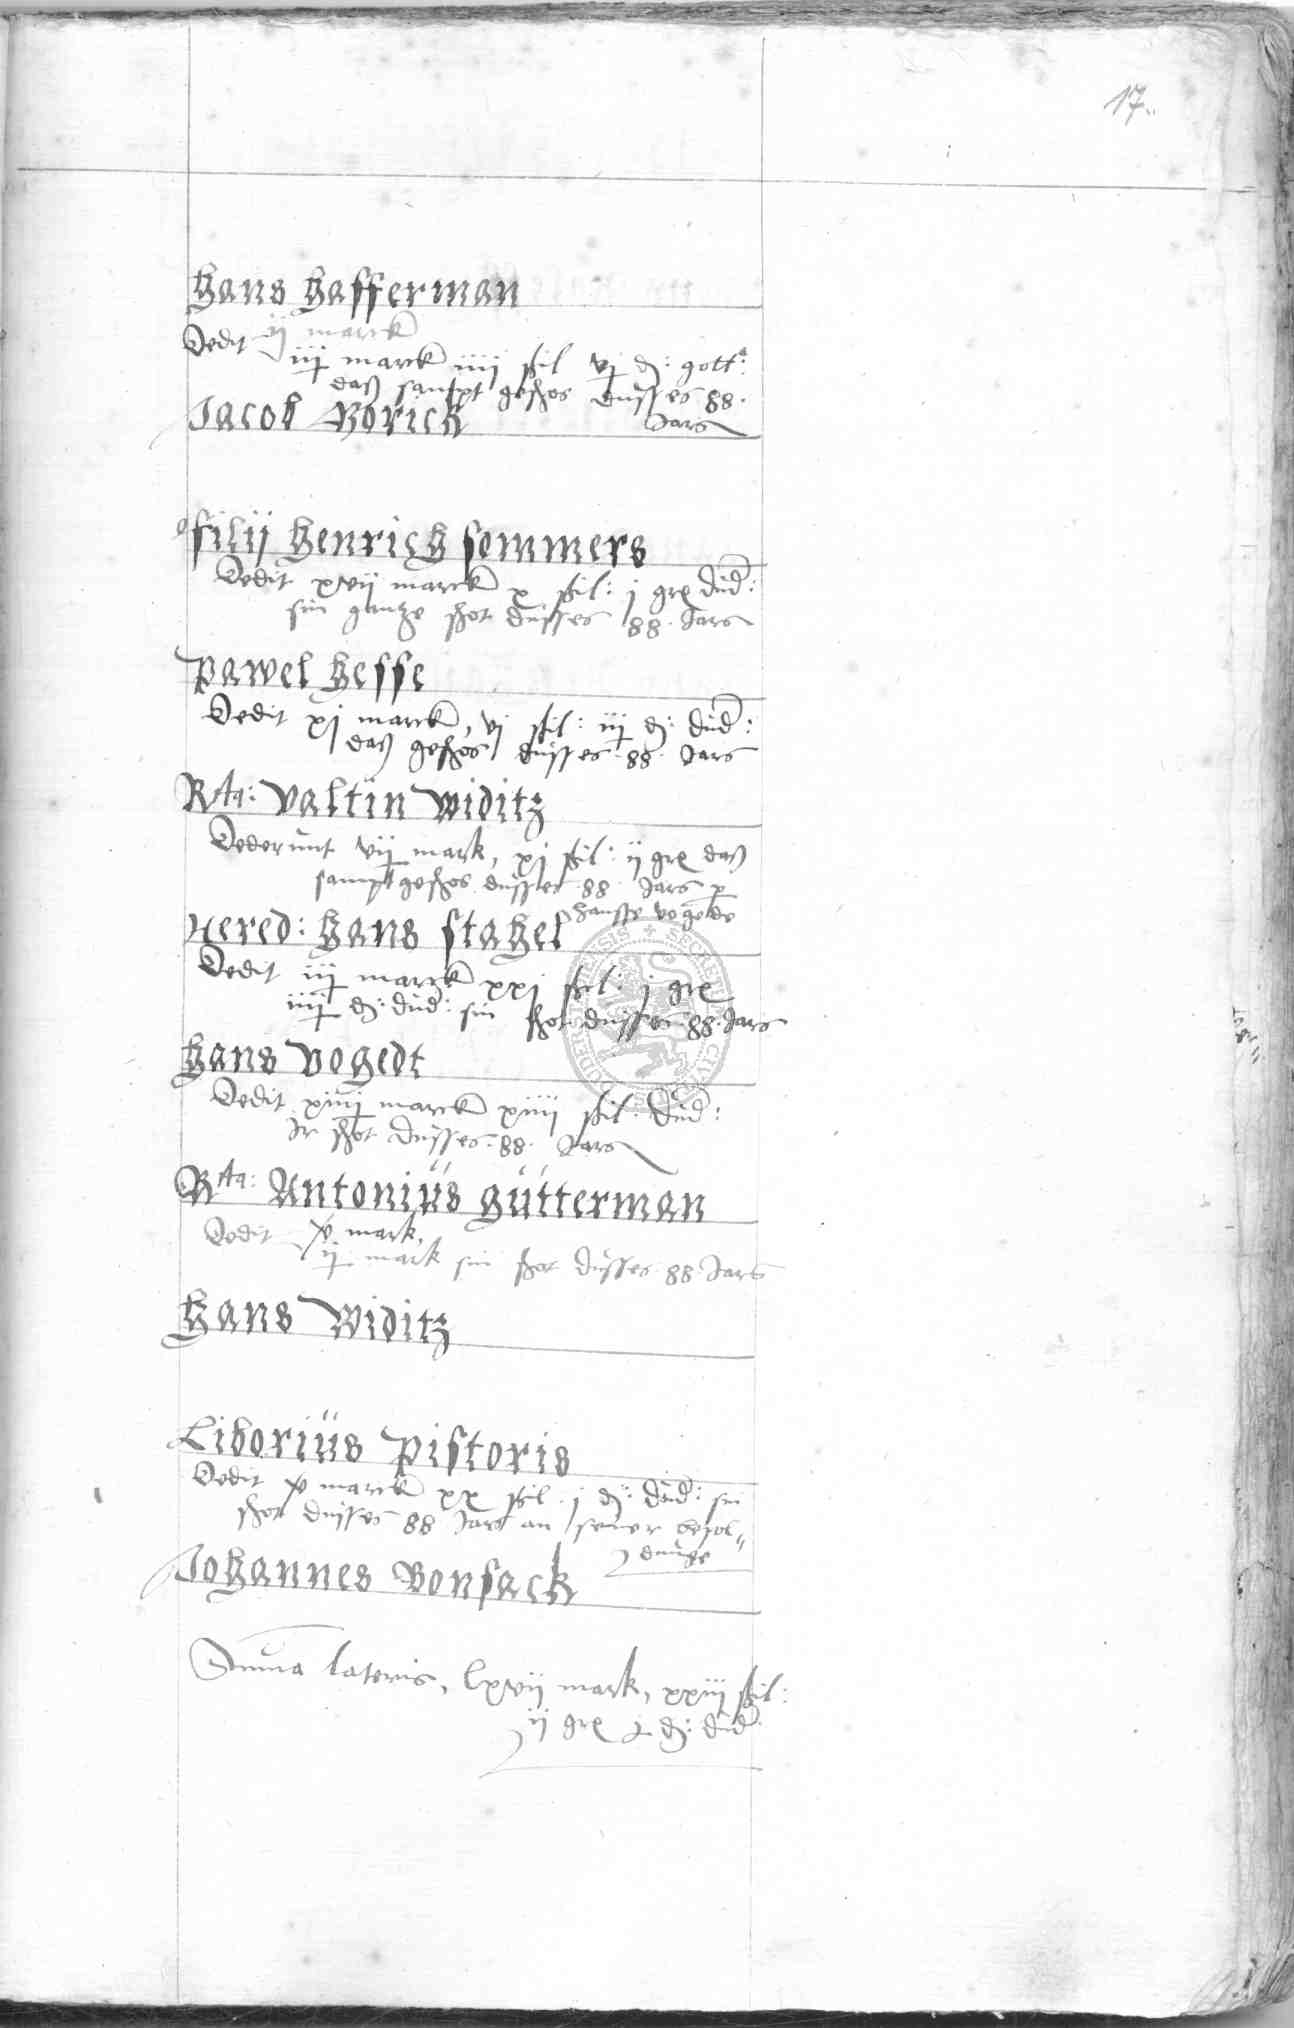 17.
Hans Hafferman
Dedit ij marck
iij marck iiij ßil vj d: gott:
daß sampt geschos dusses 88.
Jars
Jacob Borick
filij Henrich Sommers
Dedit xvij marck x ßil: j gre dud:
sin gantze schot dusses 88. Jars
Pawel Hesse
Dedit xj marck, vj ßil: iij d: dud:
daß geschos dusses 88. Jars
Rta: Valtin Widitz
Dederunt vij mark, xj ßil: ij gre daß
sampt geschos dusses 88 Jars p
Hansse vogede
Hered: Hans Stahel
Dedit iij marck xxj ßil: j gre
iiij d: dud: sin schot dusses 88. Jars
Hans Vogedt
Dedit xiiij marck xiiij ßil. dud:
Ir schot dusses 88. Jars
Rta: Antonius Gutterman
Dedit v mark,
ij mark sin schot dusses 88 Jars
Hans Widitz
Liborius Pistoris
Dedit v marck xx ßil. j d: dud: sin
schot dusses 88 Jars an seiner besol„
dunge
Johannes Bonsack
Summa lateris, lxvij mark, xxiij ßil:
ij gre d: dud.
SECRETU CIVIUM